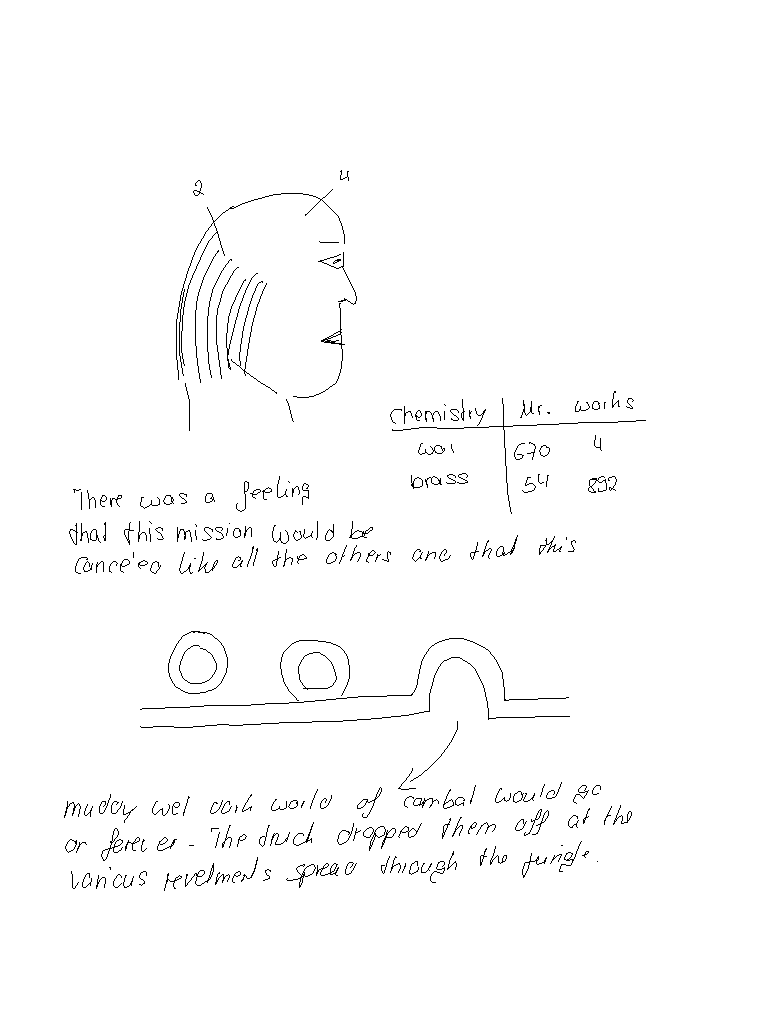 2 4
Chemistry Mr. works
war 670 4
brass 54 892
There was a feeling
that this mission would be
canceled like all the others and that this
muddy wet dark world of combat would go
on forever. The truck dropped them off at the
various revetments spread through the jungle.